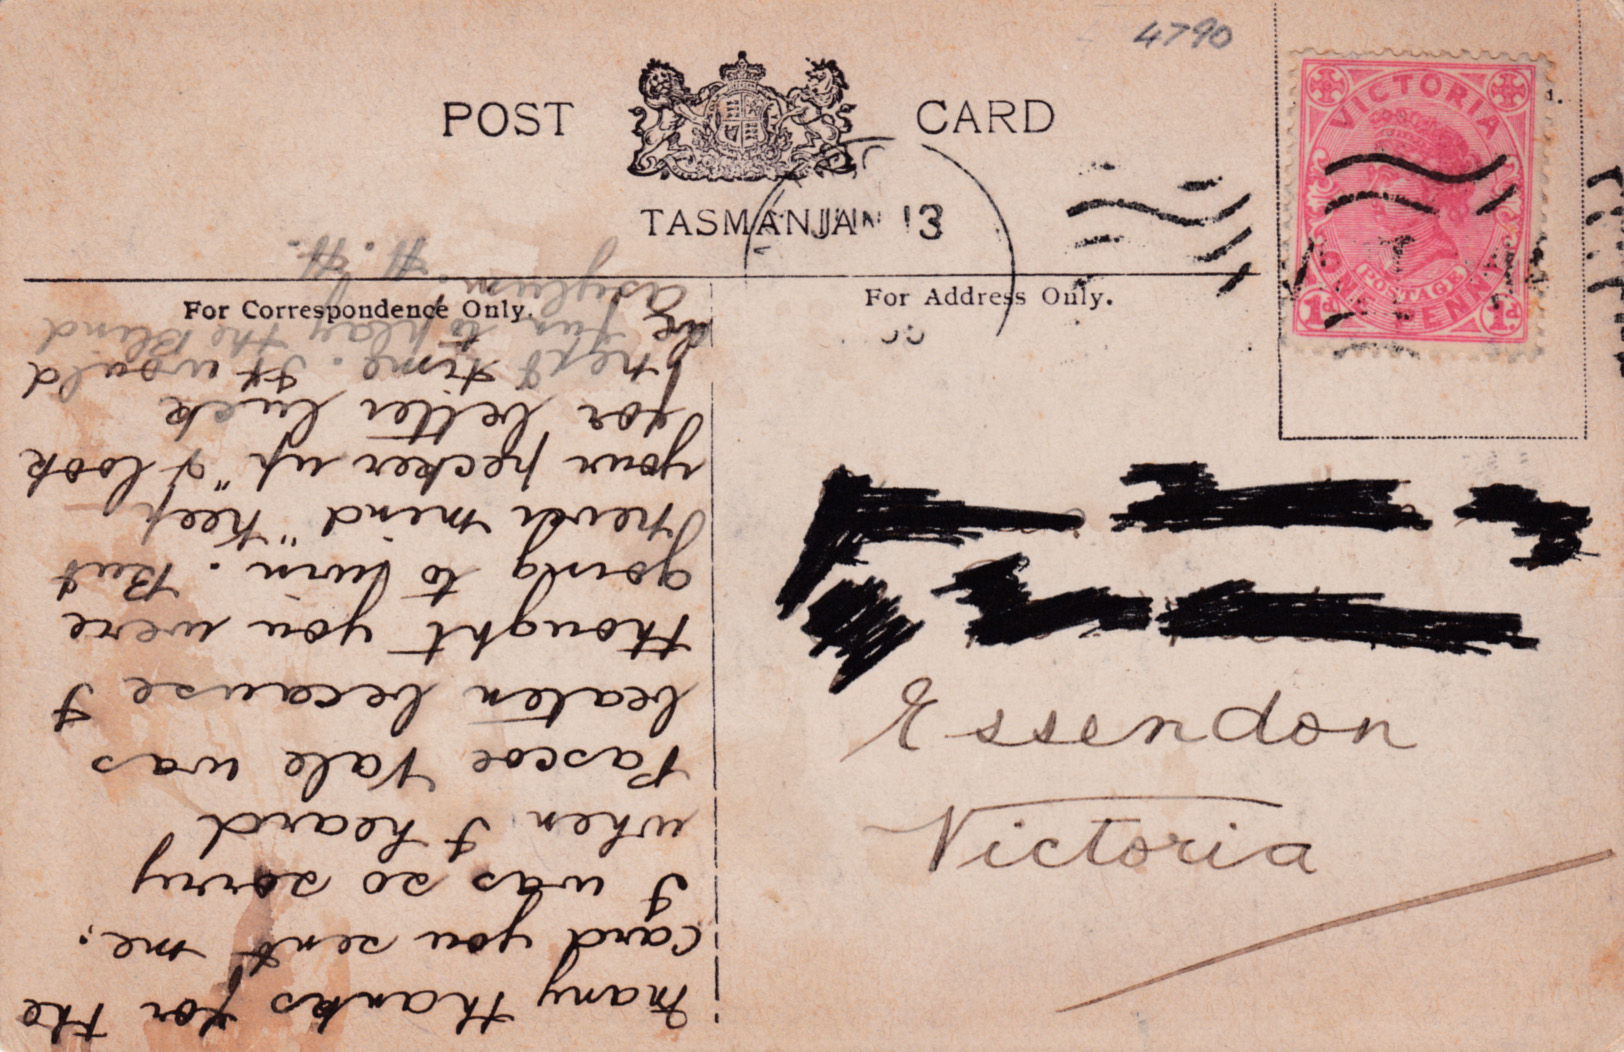 4790
POST CARD
TASMANIA
JAN 13
VICTORIA
ONE PENNY
POSTAGE
1d 1d
For Correspondence Only.
For Address Only.
Essendon
Victoria
Many thanks for the
card you sent me,
I was so sorry
when I heard
Pascoe Vale was
beaten because I
thought you were
going to win. But
never mind "keep
your pecker up" I look
for better luck
next time. It would
be fun to play the Blind
asylum. H. H.